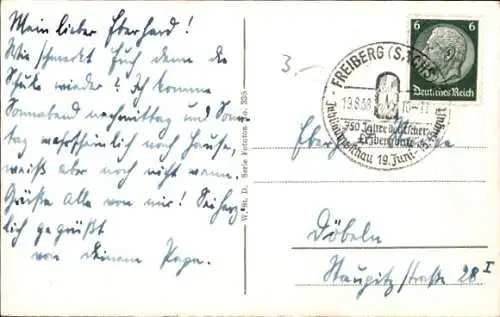 Mein lieber Eberhard!
Wie schmeckt Euch denn die
Schule wieder? Ich komme
Sonnabend nachmittag und Sonn-
tag wahrscheinlich nach Hause,
weiß aber noch nicht wann.
Grüße Alle von mir! Sei herz-
lich gegrüßt
von Deinem Papa.
W. St. D. Serie Fototon No. 336
3.-
FREIBERG (SACHS)
19.8.38 10-11
750 Jahre Deutscher
Erzbergbau
Jubiläumsschau 19. Juni
6 6
Deutsches Reich
Eberhard
Döbeln
Staupitzstraße 28 I